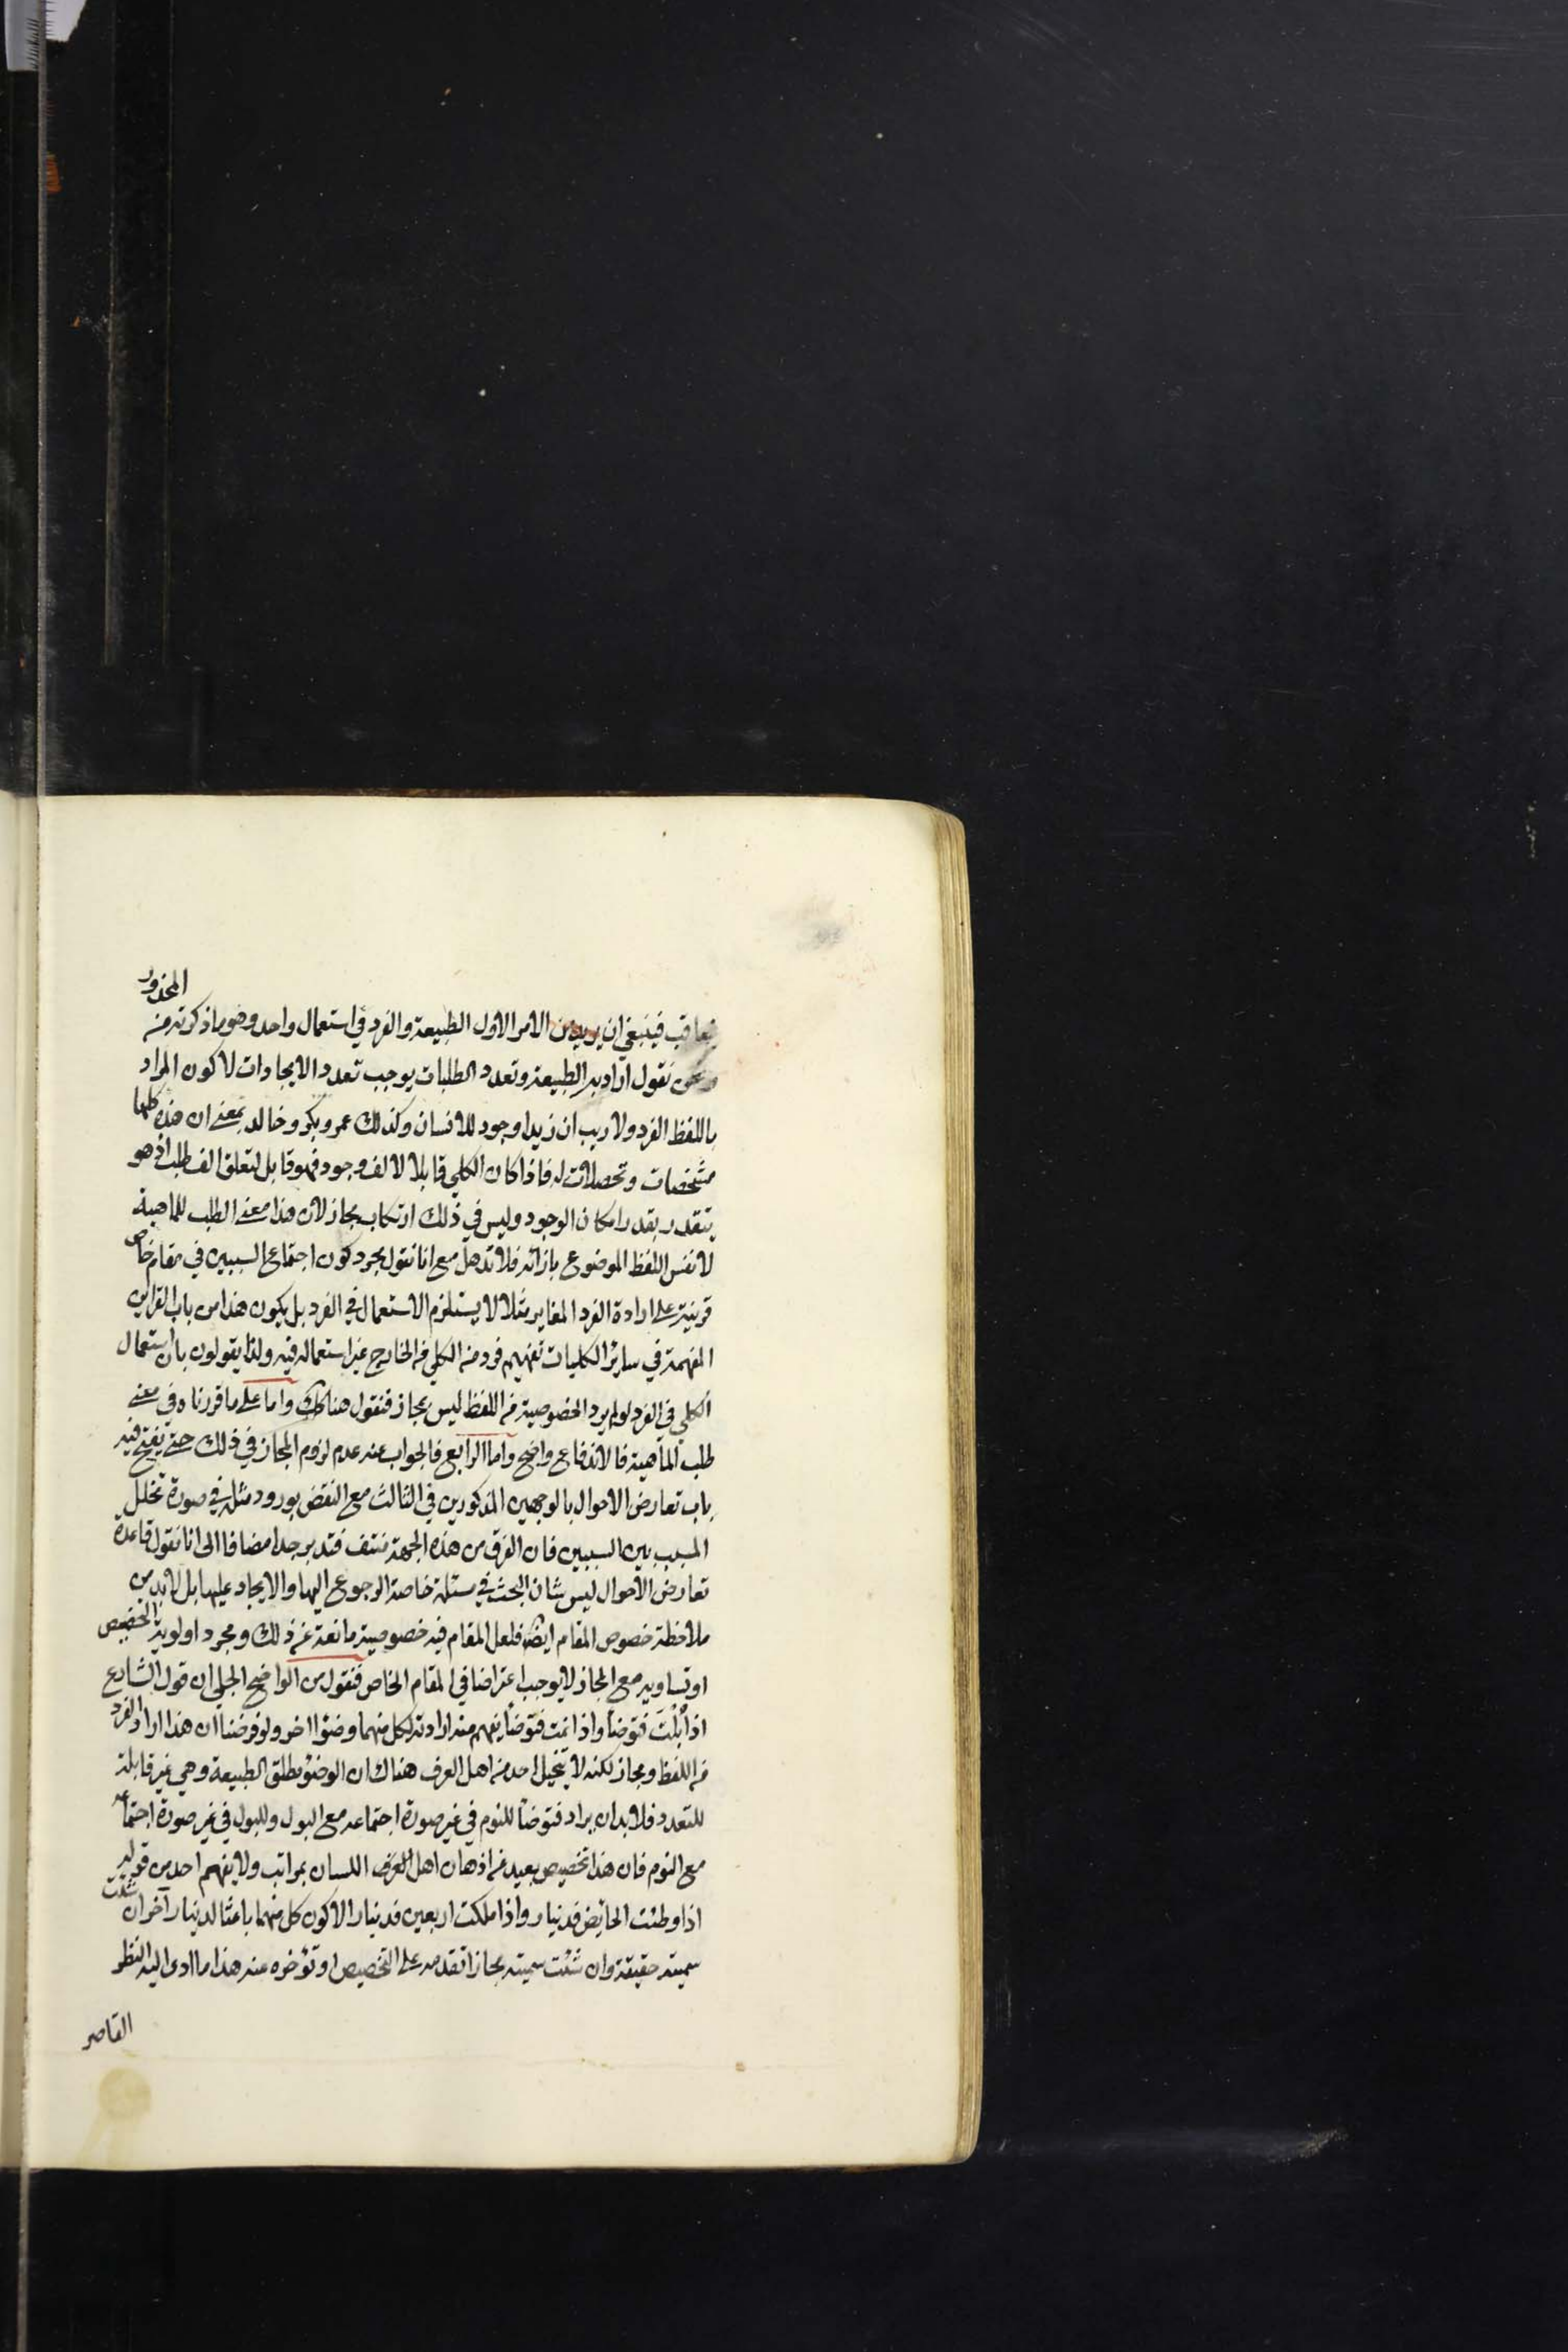 المحذور
يتعاقب فينبغي ان يريد من الامر الاول الطبيعة والفرد في استعمال واحد وهو ما ذكرته من
ونحن نقول اراد به الطبيعة وتعدد الطلبات يوجب تعدد الايجادات لا كون المراد
باللفظ الفرد ولا ريب ان زيدا وجود للانسان وكذلك عمرو بكر وخالد بمعنى ان هذه كلها
مشخصات وتحصلات له فاذا كان الكلي قابلا لالف وجود فهو قابل لتعلق الف طلب اذ هو
يتقدر بقدر امكان الوجود وليس في ذلك ارتكاب مجاز لان هذا معنى الطلب للماهية
لا نفس اللفظ الموضوع بازائه فلا تذهل مع انا نقول مجرد كون اجتماع السببين في مقام خاص
قرينة على ارادة الفرد المغاير مثلا لا يستلزم الاستعمال في الفرد بل يكون هذا من باب القراين
المفهمة في سائر الكليات تفهيم فرد من الكلي في الخارج غير استعماله فيه ولذا يقولون بان استعمال
الكلي في الفرد لو لم يرد الخصوصية من اللفظ ليس بمجاز فنقول هنا كك واما على ما قررناه في معنى
طلب الماهية فالاندفاع واضح واما الرابع فالجواب عنه عدم لزوم المجاز في ذلك حتى يفتح فيه
باب تعارض الاحوال بالوجهين المذكورين في الثالث مع النقض بورود مثله في صورة تخلل
المسبب بين السببين فان الفرق من هذه الجهة منتف فتدبر جدا مضافا الى انا نقول قاعدة
تعارض الاحوال ليس شان البحث في مسئلة خاصة الرجوع اليها والايجاد عليها بل لا بد من
ملاحظة خصوص المقام ايضا فلعل المقام فيه خصوصية مانعة عن ذلك ومجرد اولوية التخصيص
او تساويه مع المجاز لا يوجب اعتراضا في المقام الخاص فنقول من الواضح الجلي ان قول الشارع
اذا بُلْتَ فتوضأ واذا نمت فتوضأ يفهم منه ارادته لكل منهما وضوءا اخر ولو فرضنا ان هذا اراد الفرد
من اللفظ ومجاز لكنه لا يتخيل احد من اهل العرف هناك ان الوضوء مطلق الطبيعة وهي غير قابلة
للتعدد فلا بد ان يراد فتوضأ للنوم في غير صورة اجتماعه مع البول وللبول في غير صورة اجتماعه
مع النوم فان هذا تخصيص بعيد من اذهان اهل العرف اللسان بمراتب ولا يفهم احد من قوله
اذا وطئت الحايض فدينار واذا ملكت اربعين فدينارا لا كون كل منهما باعثا لدينار آخر ان شئت
سميته حقيقة وان شئت سميته مجازا تقدمه على التخصيص او تؤخره عنه هذا ما ادى اليه النظر
القاصر